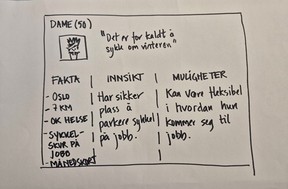 DAME (50)
"Det er for kaldt å
sykle om vinteren"
FAKTA
- OSLO
7 KM
- OK HELSE
- SYKKEL-
SKUR PÅ
JOBB
- MÅNEDSKORT
INNSIKT
Har sikker
plass å
parkere sykkel
på jobb.
MULIGHETER
Kan være fleksibel
i hvordan hun
kommer seg til
jobb.